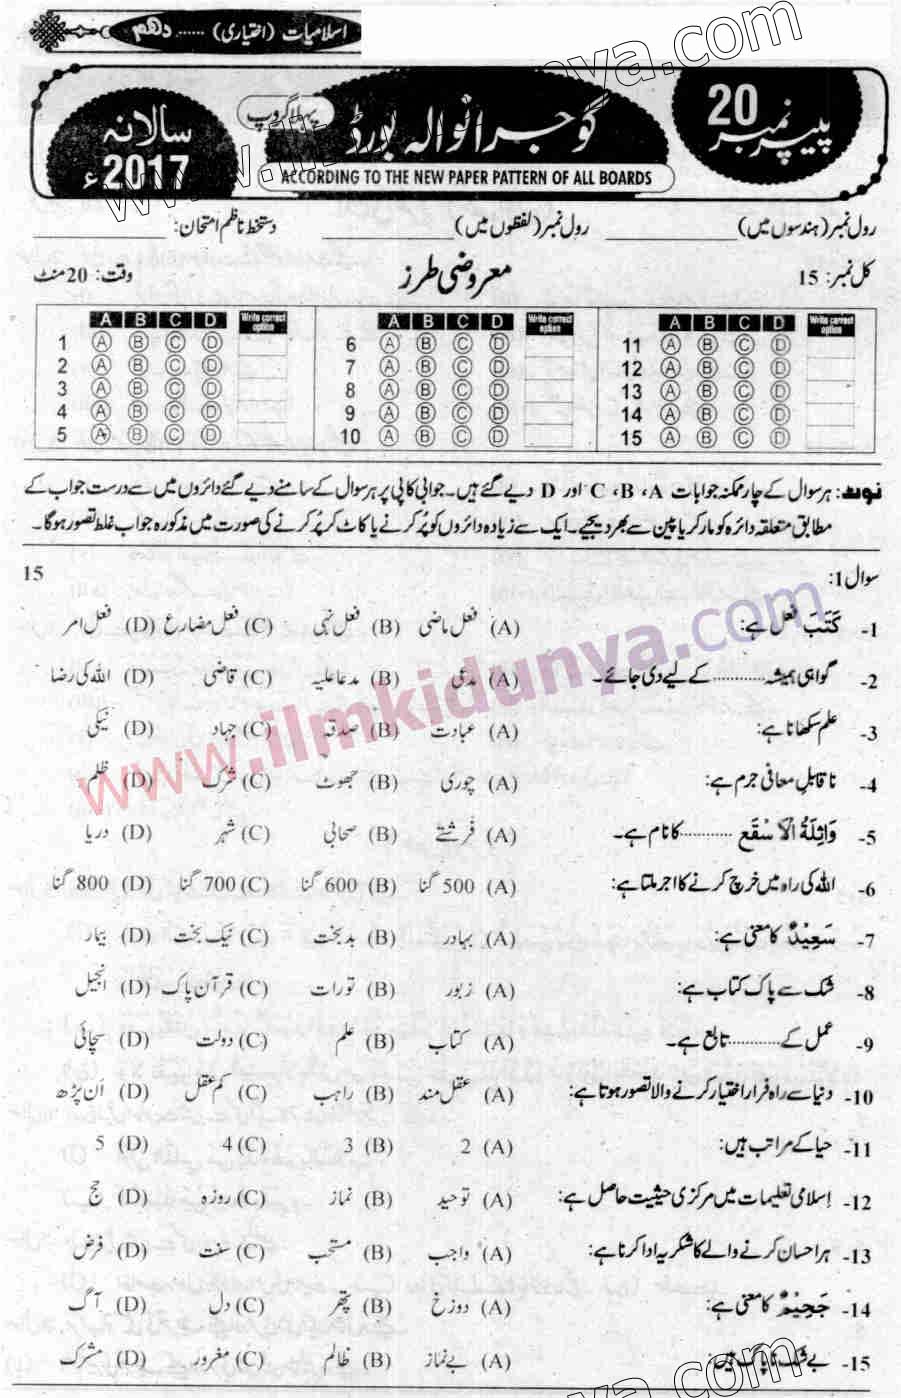 اسلامیات (اختیاری) ...... دھم
پیپر نمبر 20
گوجرانوالہ بورڈ
پہلا گروپ
سالانہ 2017ء
ACCORDING TO THE NEW PAPER PATTERN OF ALL BOARDS
رول نمبر (ہندسوں میں) ____________ رول نمبر (لفظوں میں) ____________ دستخط ناظم امتحان: ____________
کل نمبر: 15 معروضی طرز وقت: 20 منٹ
A B C D Write correct option A B C D Write correct option A B C D Write correct option
1 A B C D 6 A B C D 11 A B C D
2 A B C D 7 A B C D 12 A B C D
3 A B C D 8 A B C D 13 A B C D
4 A B C D 9 A B C D 14 A B C D
5 A B C D 10 A B C D 15 A B C D
نوٹ: ہر سوال کے چار ممکنہ جوابات A، B، C اور D دیے گئے ہیں۔ جوابی کاپی پر ہر سوال کے سامنے دیے گئے دائروں میں سے درست جواب کے
مطابق متعلقہ دائرہ کو مارکر یا پین سے بھر دیجیے۔ ایک سے زیادہ دائروں کو پُر کرنے یا کاٹ کر پُر کرنے کی صورت میں مذکورہ جواب غلط تصور ہوگا۔
سوال 1: 15
1- كَتَبَ فعل ہے: (A) فعل ماضی (B) فعل نہی (C) فعل مضارع (D) فعل امر
2- گواہی ہمیشہ ............ کے لیے دی جائے۔ (A) مدعی (B) مدعا علیہ (C) قاضی (D) اللہ کی رضا
3- علم سکھانا ہے: (A) عبادت (B) صدقہ (C) جہاد (D) نیکی
4- ناقابلِ معافی جرم ہے: (A) چوری (B) جھوٹ (C) شرک (D) ظلم
5- وَاثِلَةُ الْاَسْقَع ............ کا نام ہے۔ (A) فرشتے (B) صحابی (C) شہر (D) دریا
6- اللہ کی راہ میں خرچ کرنے کا اجر ملتا ہے: (A) 500 گنا (B) 600 گنا (C) 700 گنا (D) 800 گنا
7- سَعِيْدٌ کا معنی ہے: (A) بہادر (B) بدبخت (C) نیک بخت (D) بیمار
8- شک سے پاک کتاب ہے: (A) زبور (B) تورات (C) قرآن پاک (D) انجیل
9- عمل کے ............ تابع ہے۔ (A) کتاب (B) علم (C) دولت (D) سچائی
10- دنیا سے راہ فرار اختیار کرنے والا تصور ہوتا ہے: (A) عقل مند (B) راہب (C) کم عقل (D) اَن پڑھ
11- حیا کے مراتب ہیں: (A) 2 (B) 3 (C) 4 (D) 5
12- اِسلامی تعلیمات میں مرکزی حیثیت حاصل ہے: (A) توحید (B) نماز (C) روزہ (D) حج
13- ہر احسان کرنے والے کا شکریہ ادا کرنا ہے: (A) واجب (B) مستحب (C) سنت (D) فرض
14- جَحِيْمٌ کا معنی ہے: (A) دوزخ (B) پتھر (C) دل (D) آگ
15- بے شک ناپاک ہیں: (A) بے نماز (B) ظالم (C) مغرور (D) مشرک
www.ilmkidunya.com